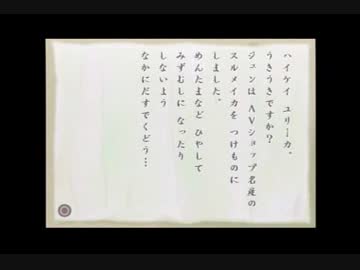 ハイケイ ユリーカ、
うきうきですか?
ジュンは AVショップ名産の
スルメイカを つけものに
しました。
めんたまなど ひやして
みずむしに なったり
しないよう
なかにだすでくどう…